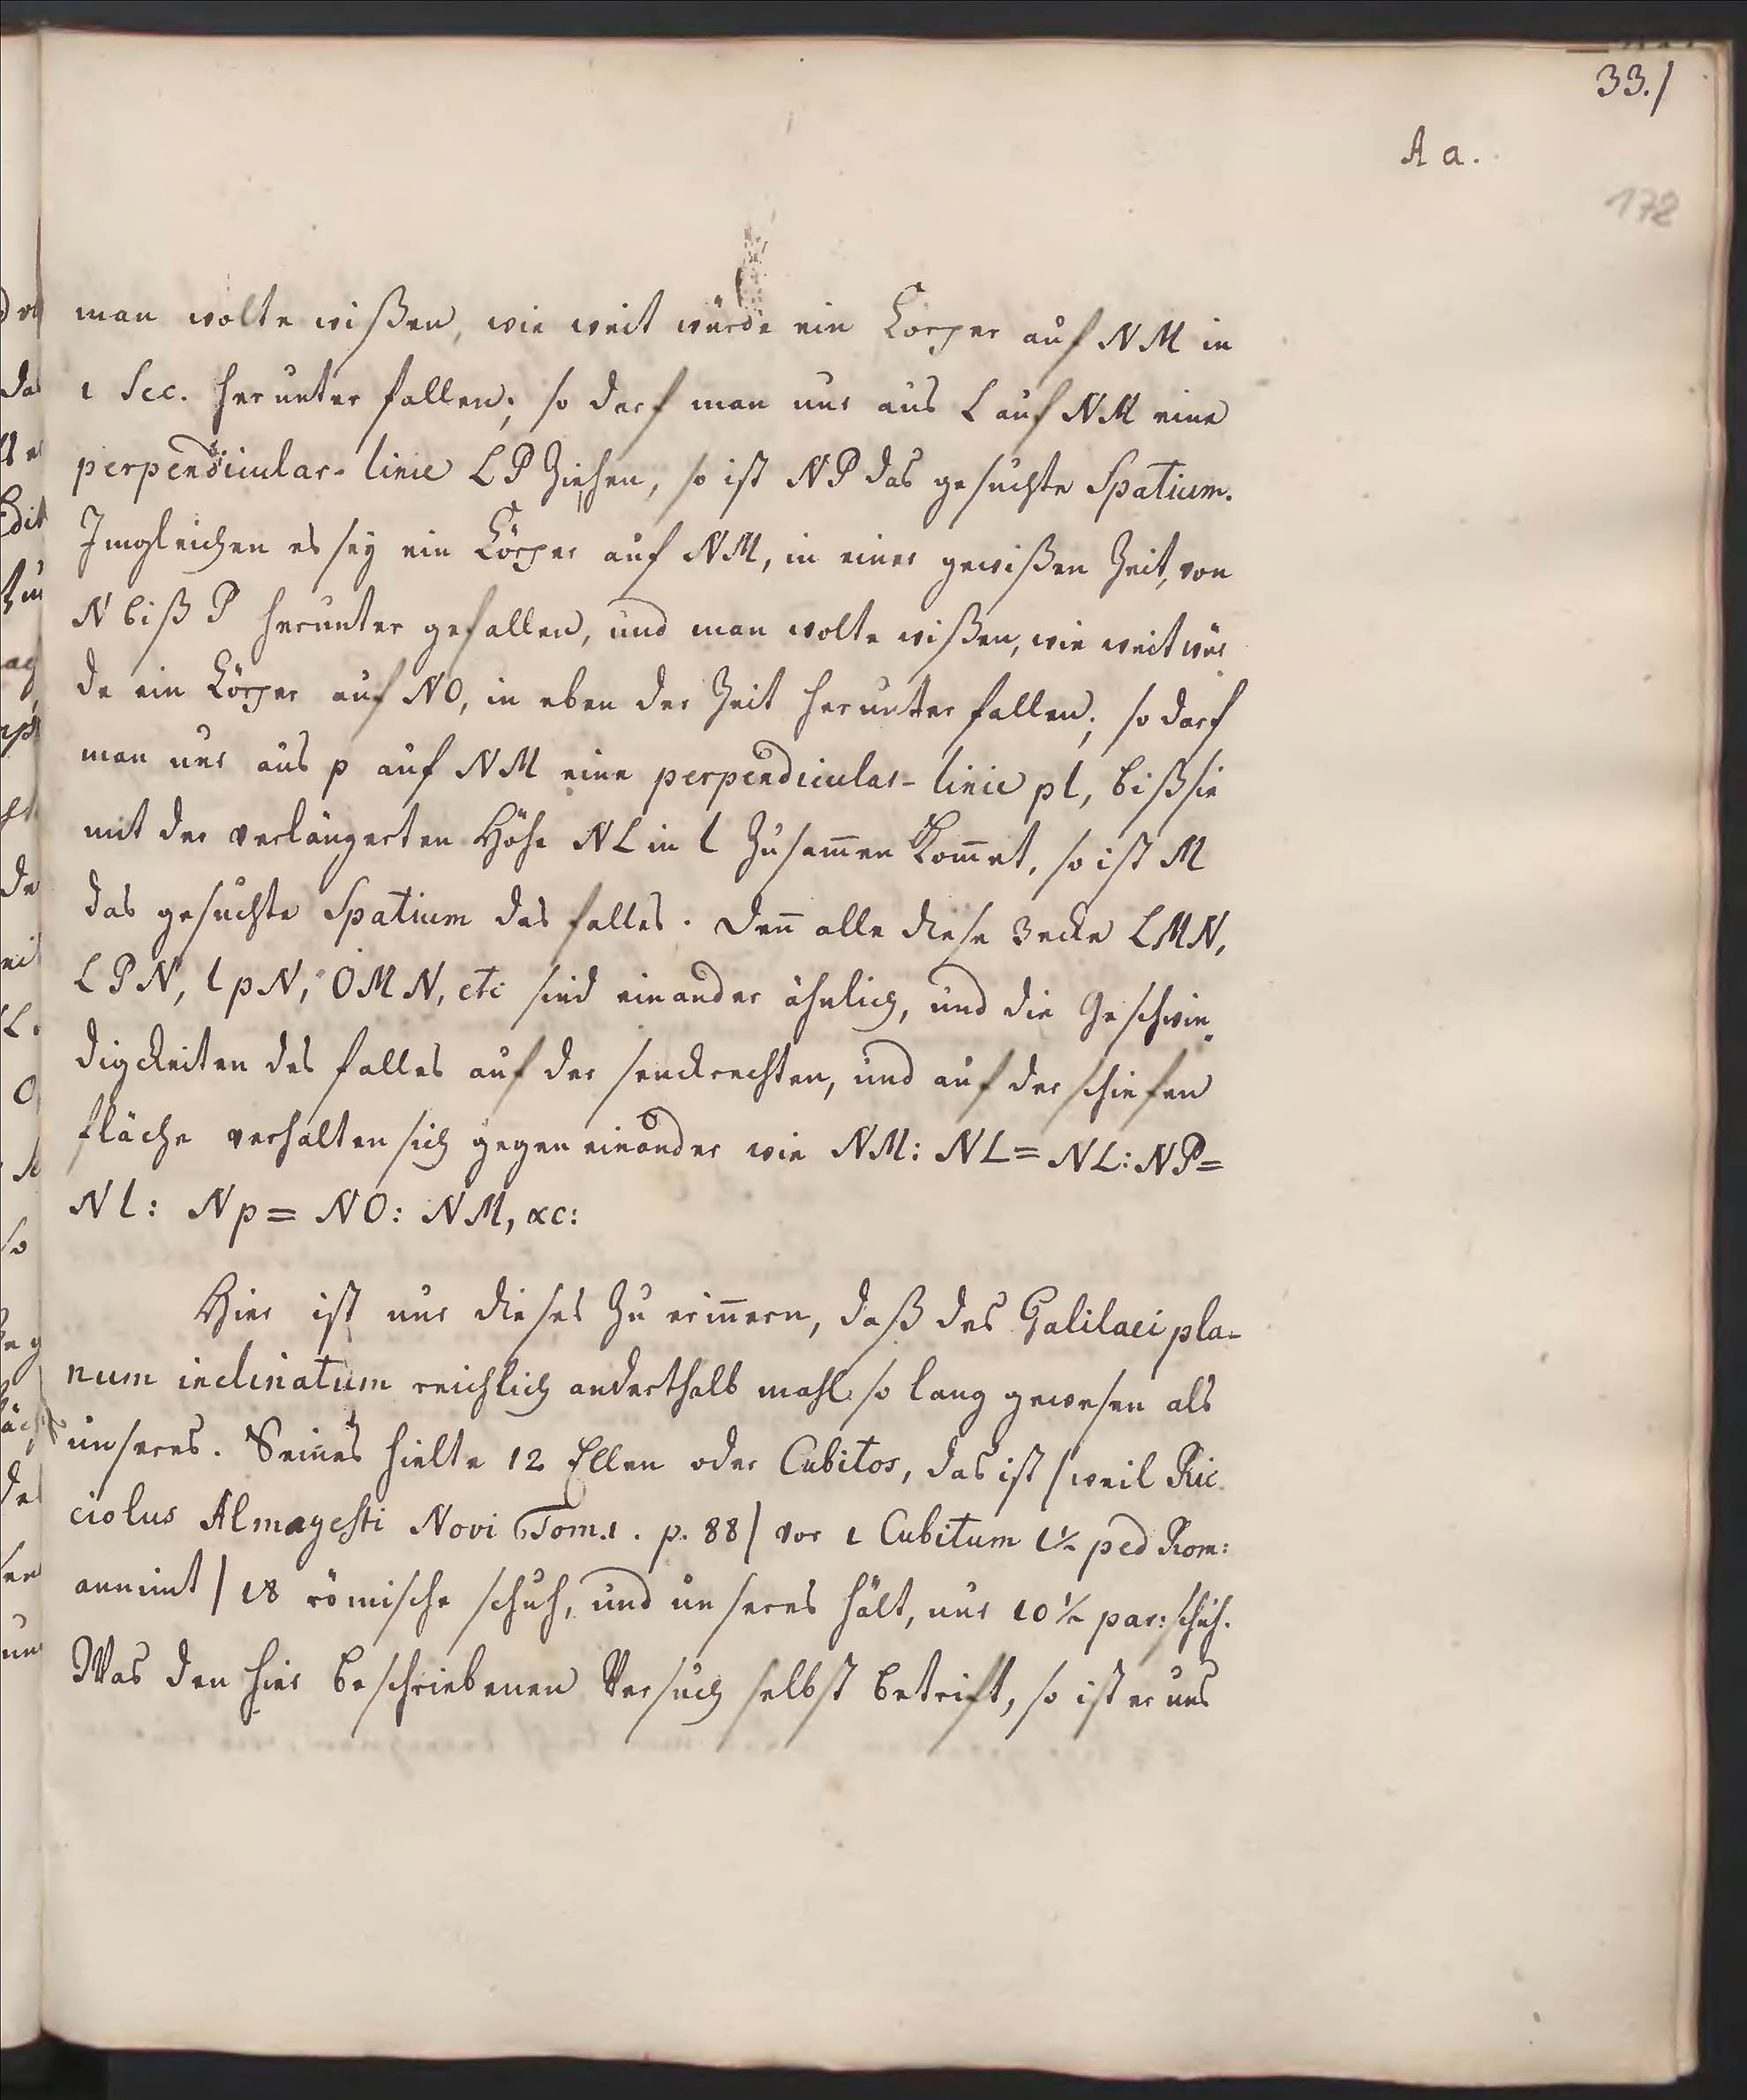 33./
A a.
172
man wolte wißen, wie weit würde ein Corper auf NM in
1 Sec. herunter fallen; so darf man nur aus L auf NM eine
perpendicular-linie LP ziehen, so ist NP das gesuchte Spatium.
Imgleichen es sey ein Cörper auf NM, in einer gewißen Zeit, von
N biß P herunter gefallen, und man wolte wißen, wie weit wür
de ein Cörper auf NO, in eben der Zeit herunter fallen; so darf
man nur aus p auf NM eine perpendicular-linie pl, biß sie
mit der verlängerten Höhe NL in l zusam̄en kom̄et, so ist Nl
das gesuchte Spatium des falles. Den̄ alle diese 3ecke LMN,
LPN, lpN, OMN, etc sind einander ähnlich, und die Geschwin¬
digckeiten des falles auf der senckrechten, und auf der schiefen
fläche verhalten sich gegen einander wie NM: NL = NL: NP =
Nl: Np = NO: NM, &c:
Hier ist nur dieses zu erin̄ern, daß des Galilaei pla-
num inclinatum reichlich anderthalb mahl so lang gewesen als
unseres. Seines hielte 12 Ellen oder Cubitos, das ist /weil Ric
ciolus Almagesti Novi Tom.1. p. 88/ vor 1 Cubitum 1½ ped Rom:
annimt/ 18 römische schuh, und unseres hält, nur 10½ par: schuh.
Was den hier beschriebenen Versuch selbst betrift, so ist er uns